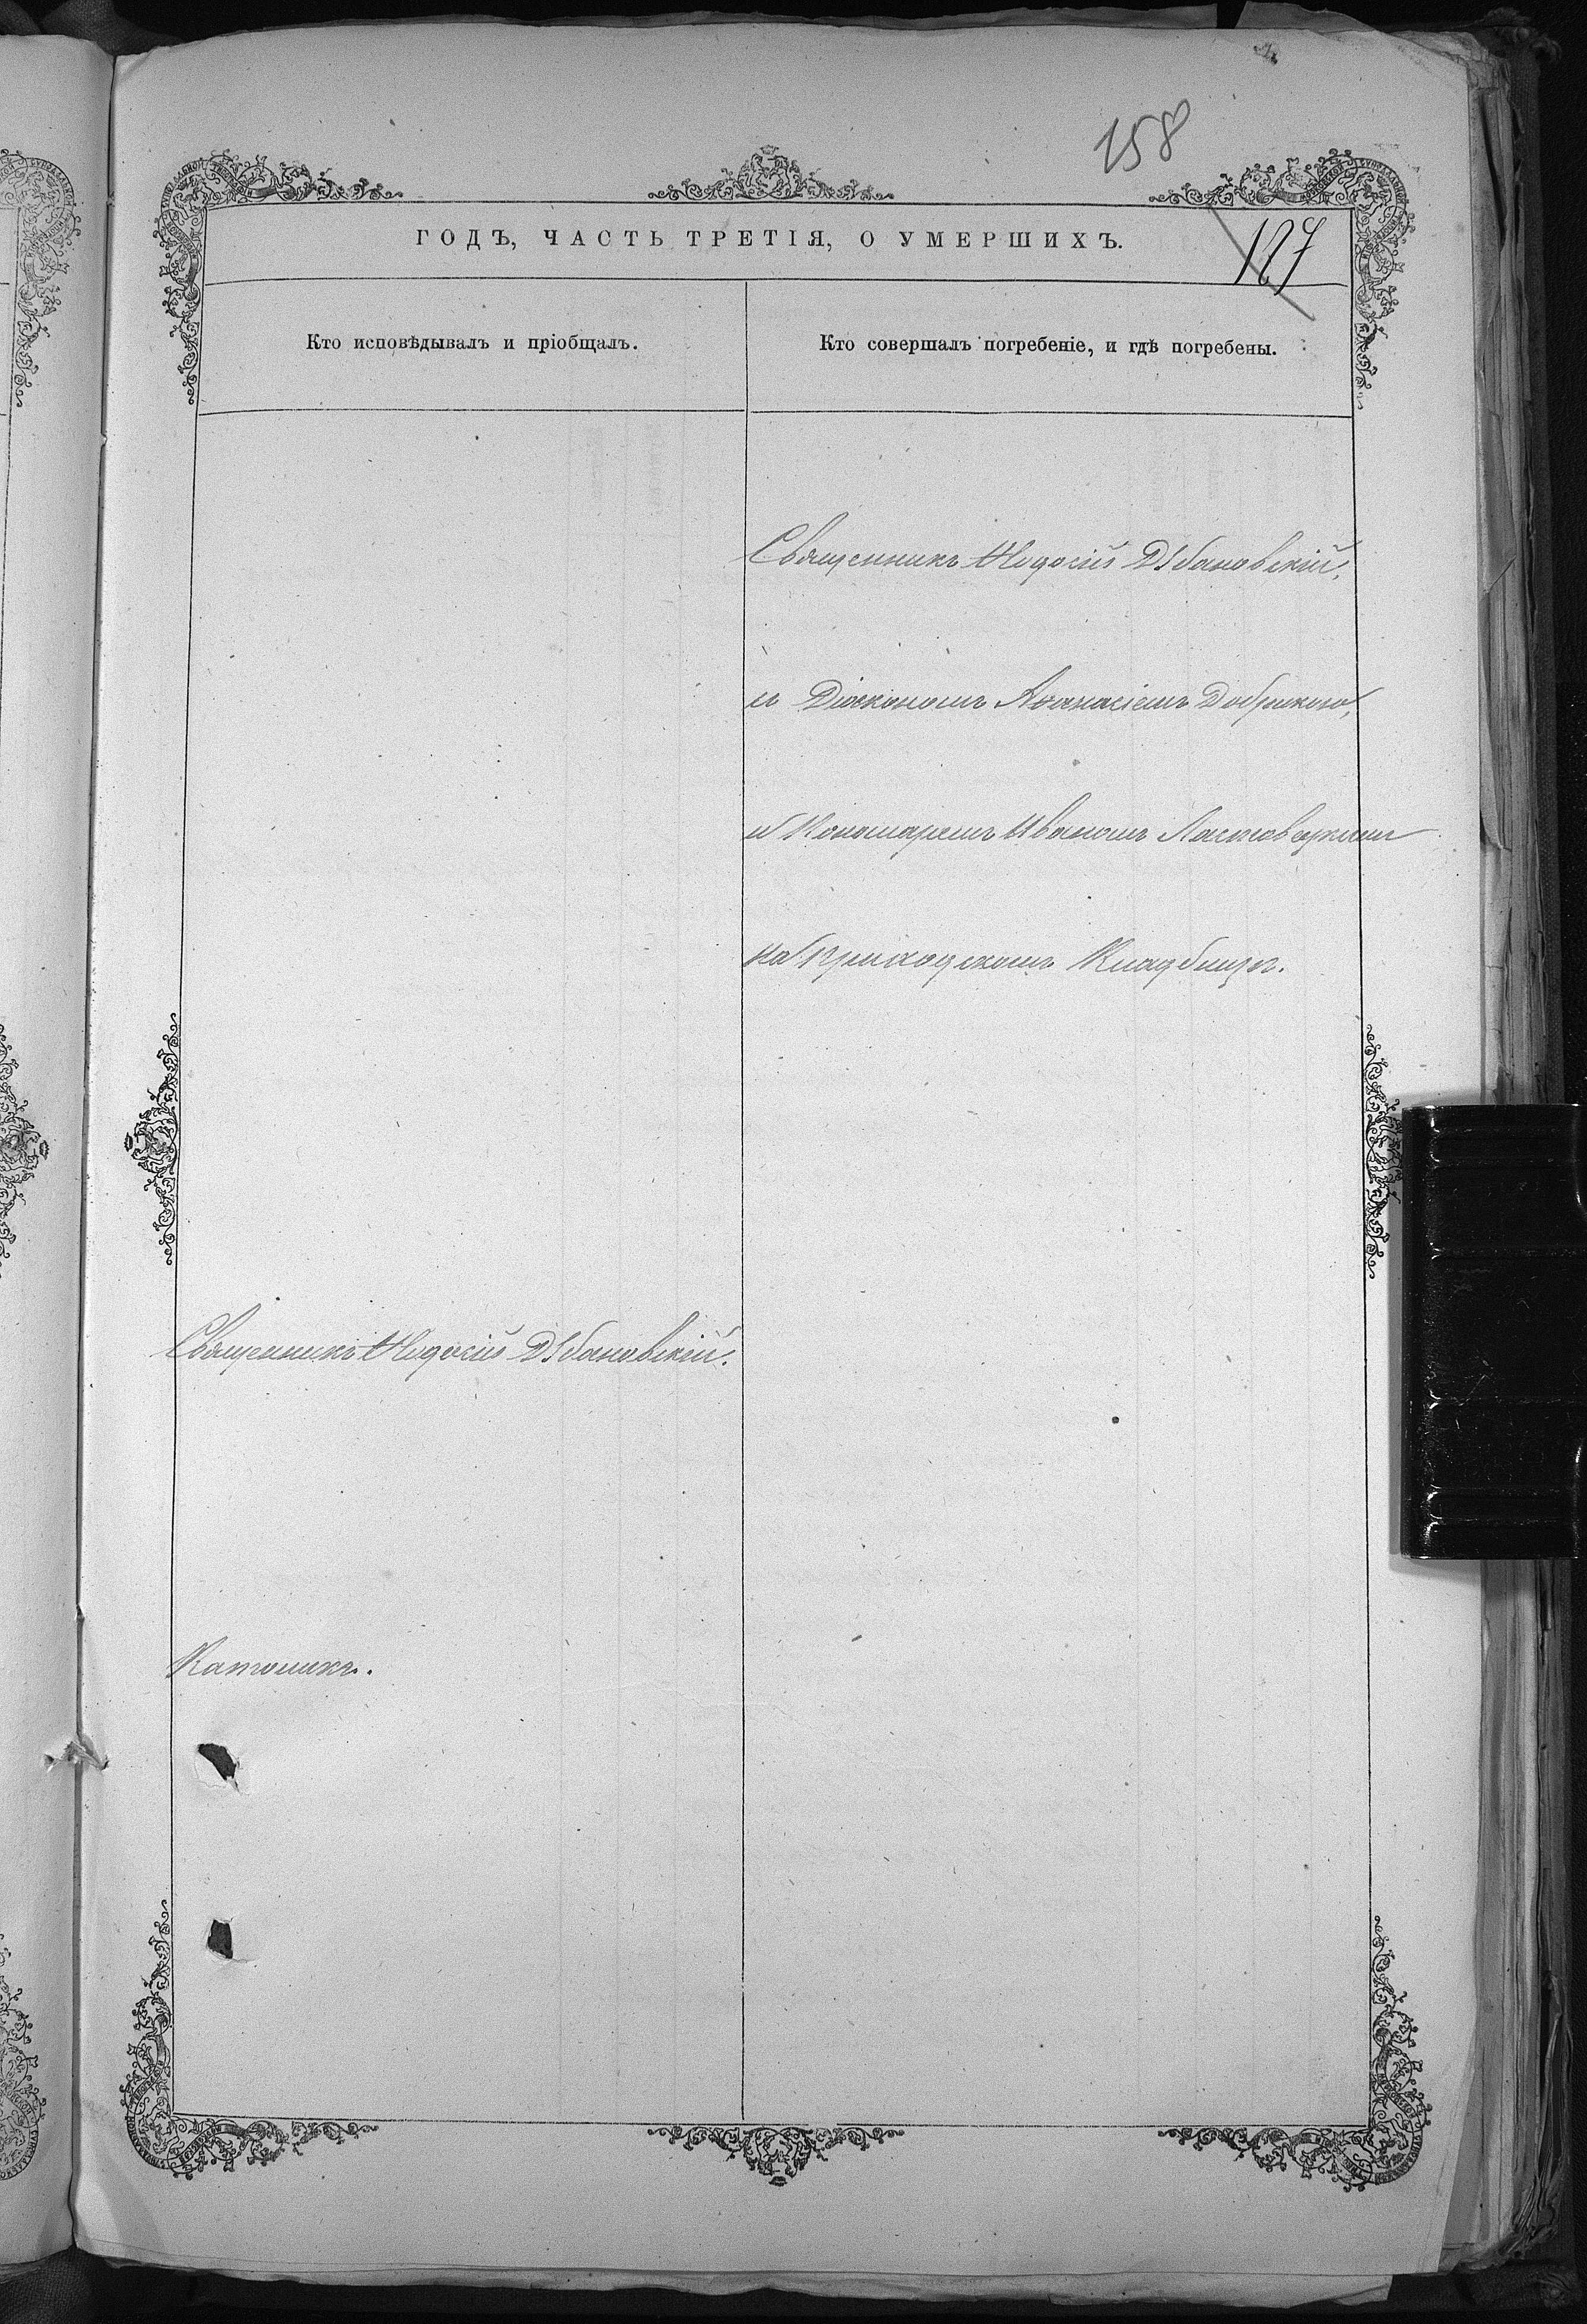 158
ГОДЪ, ЧАСТЬ ТРЕТІЯ, О УМЕРШИХЪ.
127
Кто исповѣдывалъ и пріобщалъ.
Кто совершалъ погребеніе, и гдѣ погребены.
Священникъ Ѳеодосій Дзбановскій,
съ Діакономъ Аѳанасіемъ
и Пономаремъ Иваномъ
на приходскомъ Кладбищѣ.
Священникъ Ѳеодосій Дзбановскій.
Католикъ.